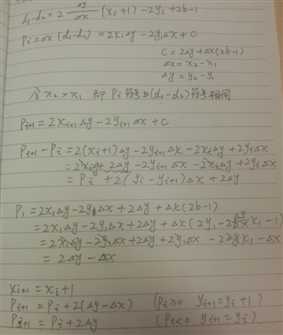 d₁-d₂ = 2 Δy/Δx (xᵢ+1) - 2yᵢ + 2b - 1
Pᵢ = Δx (d₁-d₂) = 2xᵢΔy - 2yᵢΔx + C
C = 2Δy + Δx(2b-1)
Δx = x₂ - x₁
Δy = y₂ - y₁
x₂ > x₁ 即 Pᵢ 符号与(d₁-d₂)符号相同
Pᵢ₊₁ = 2xᵢ₊₁Δy - 2yᵢ₊₁Δx + C
Pᵢ₊₁ - Pᵢ = 2(xᵢ+1)Δy - 2yᵢ₊₁Δx - 2xᵢΔy + 2yᵢΔx
= 2xᵢΔy + 2Δy - 2yᵢ₊₁Δx - 2xᵢΔy + 2yᵢΔx
= Pᵢ + 2(yᵢ - yᵢ₊₁)Δx + 2Δy
P₁ = 2x₁Δy - 2y₁Δx + 2Δy + Δx(2b-1)
= 2x₁Δy - 2y₁Δx + 2Δy + Δx(2y₁ - 2 Δy/Δx x₁ - 1)
= 2x₁Δy - 2y₁Δx + 2Δy + 2y₁Δx - 2Δy x₁ - Δx
= 2Δy - Δx
xᵢ₊₁ = xᵢ + 1
Pᵢ₊₁ = Pᵢ + 2(Δy - Δx) (Pᵢ>0 yᵢ₊₁ = yᵢ + 1)
Pᵢ₊₁ = Pᵢ + 2Δy (Pᵢ<0 yᵢ₊₁ = yᵢ)